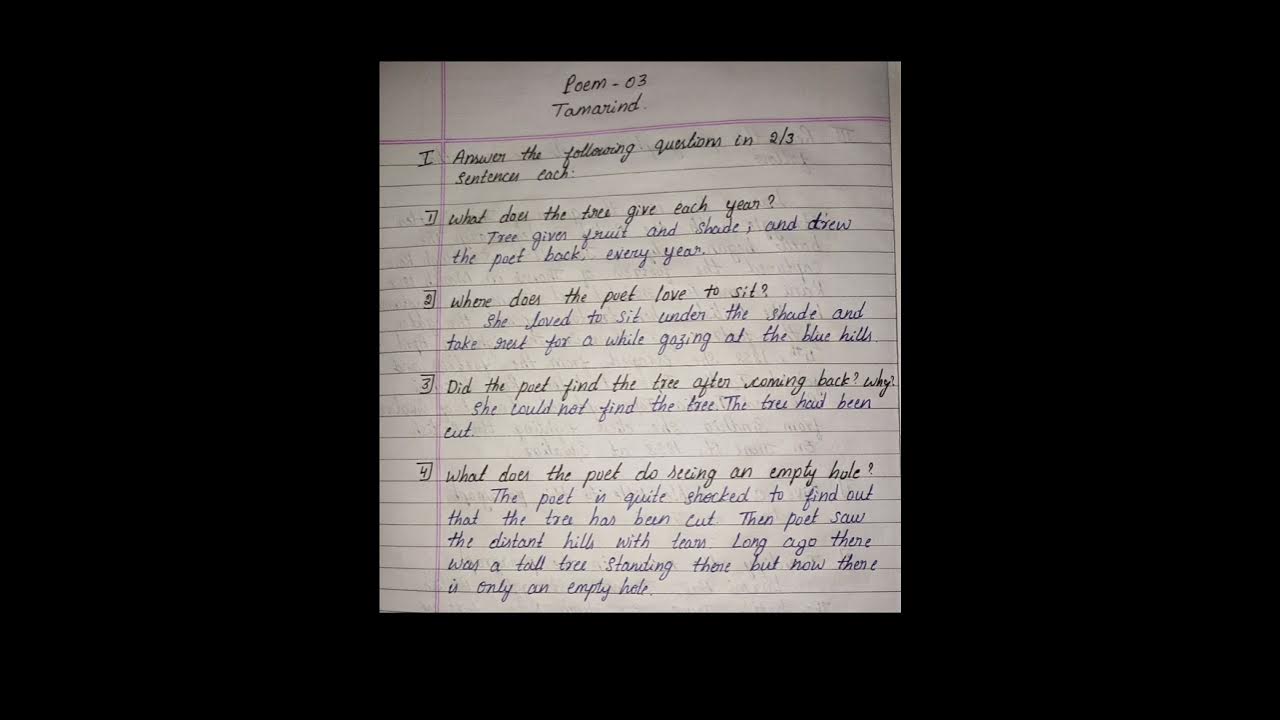 Poem - 03
Tamarind.
I Answer the following questions in 2/3
sentences each:
1] What does the tree give each year?
Tree gives fruit and shade; and drew
the poet back, every year.
2] Where does the poet love to sit?
She loved to sit under the shade and
take rest for a while gazing at the blue hills.
3] Did the poet find the tree after coming back? Why?
She could not find the tree. The tree had been
cut.
4] What does the poet do seeing an empty hole?
The poet is quite shocked to find out
that the tree has been cut. Then poet saw
the distant hills with tears. Long ago there
was a tall tree standing there but now there
is only an empty hole.